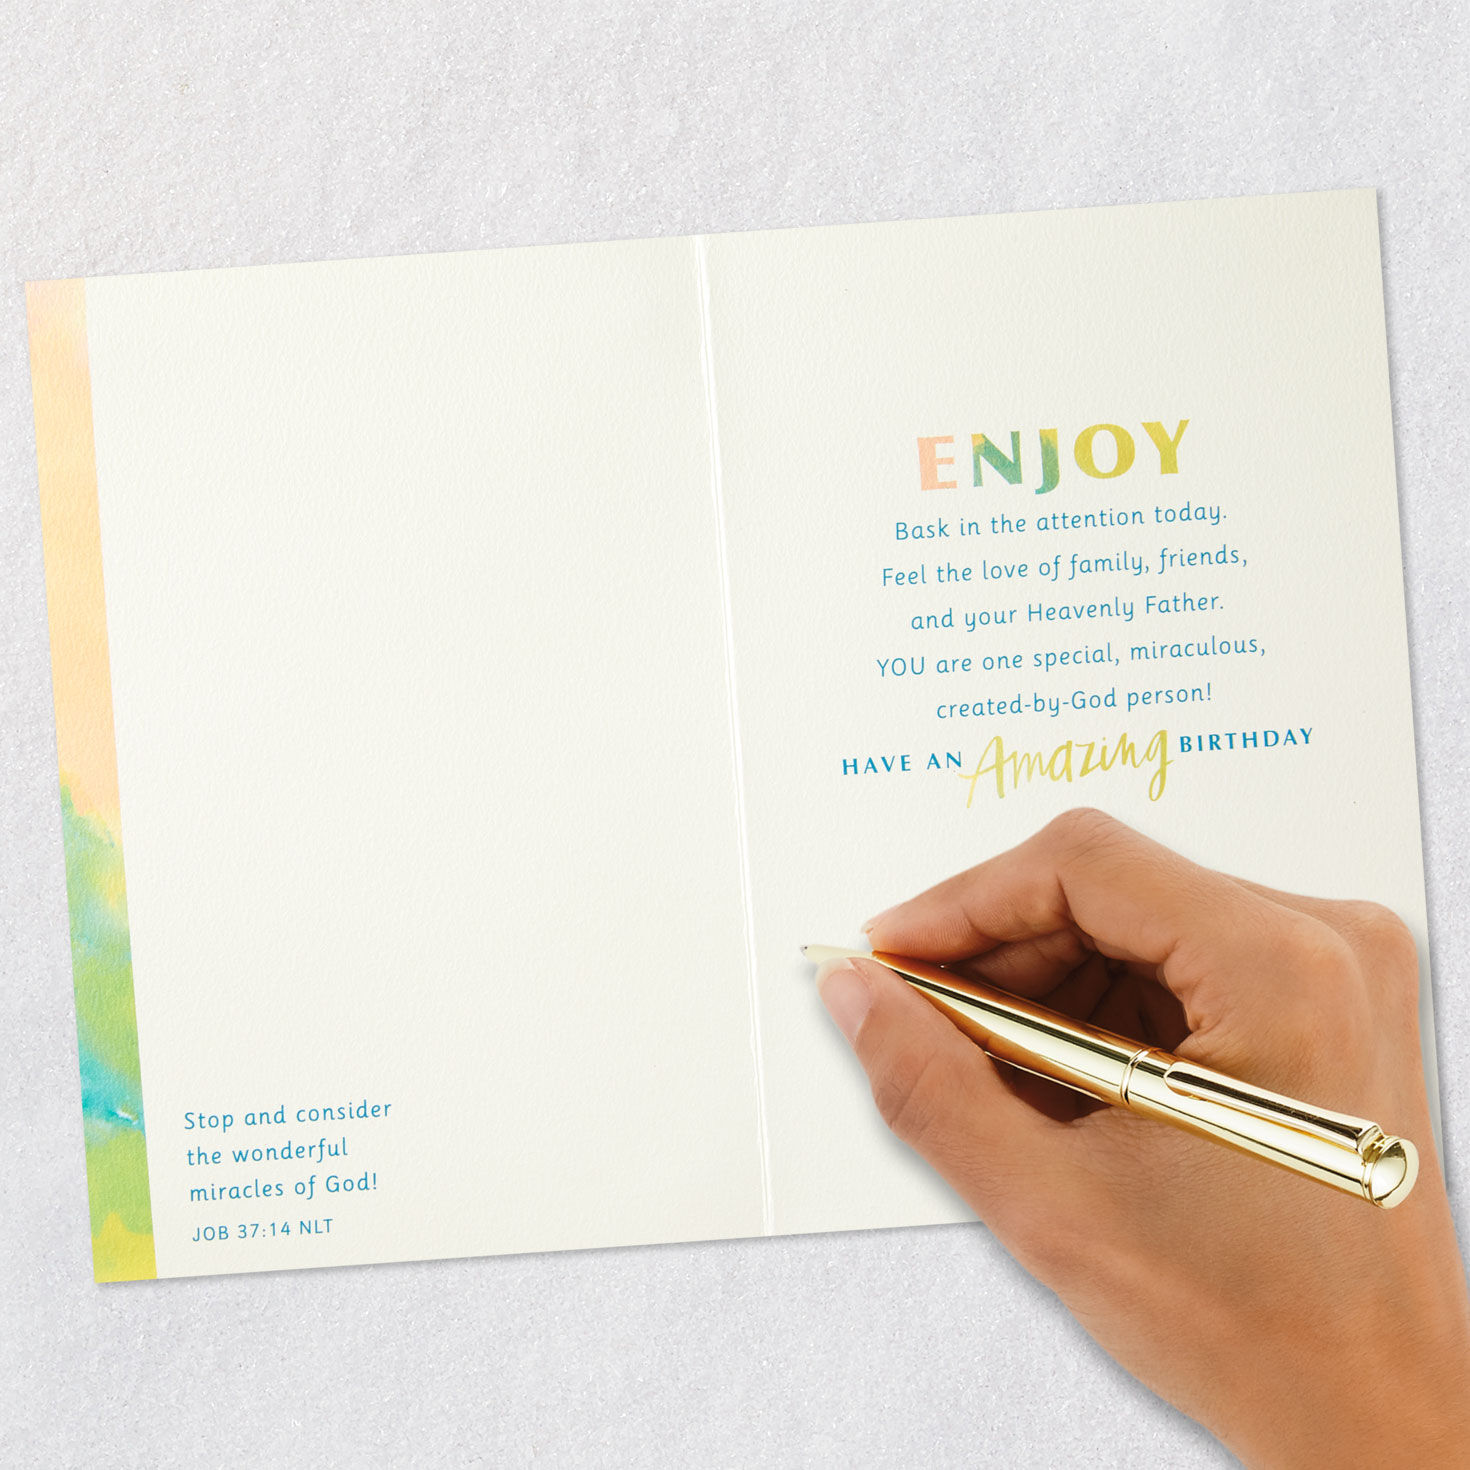 Stop and consider
the wonderful
miracles of God!
JOB 37:14 NLT
ENJOY
Bask in the attention today.
Feel the love of family, friends,
and your Heavenly Father.
YOU are one special, miraculous,
created-by-God person!
HAVE AN Amazing BIRTHDAY